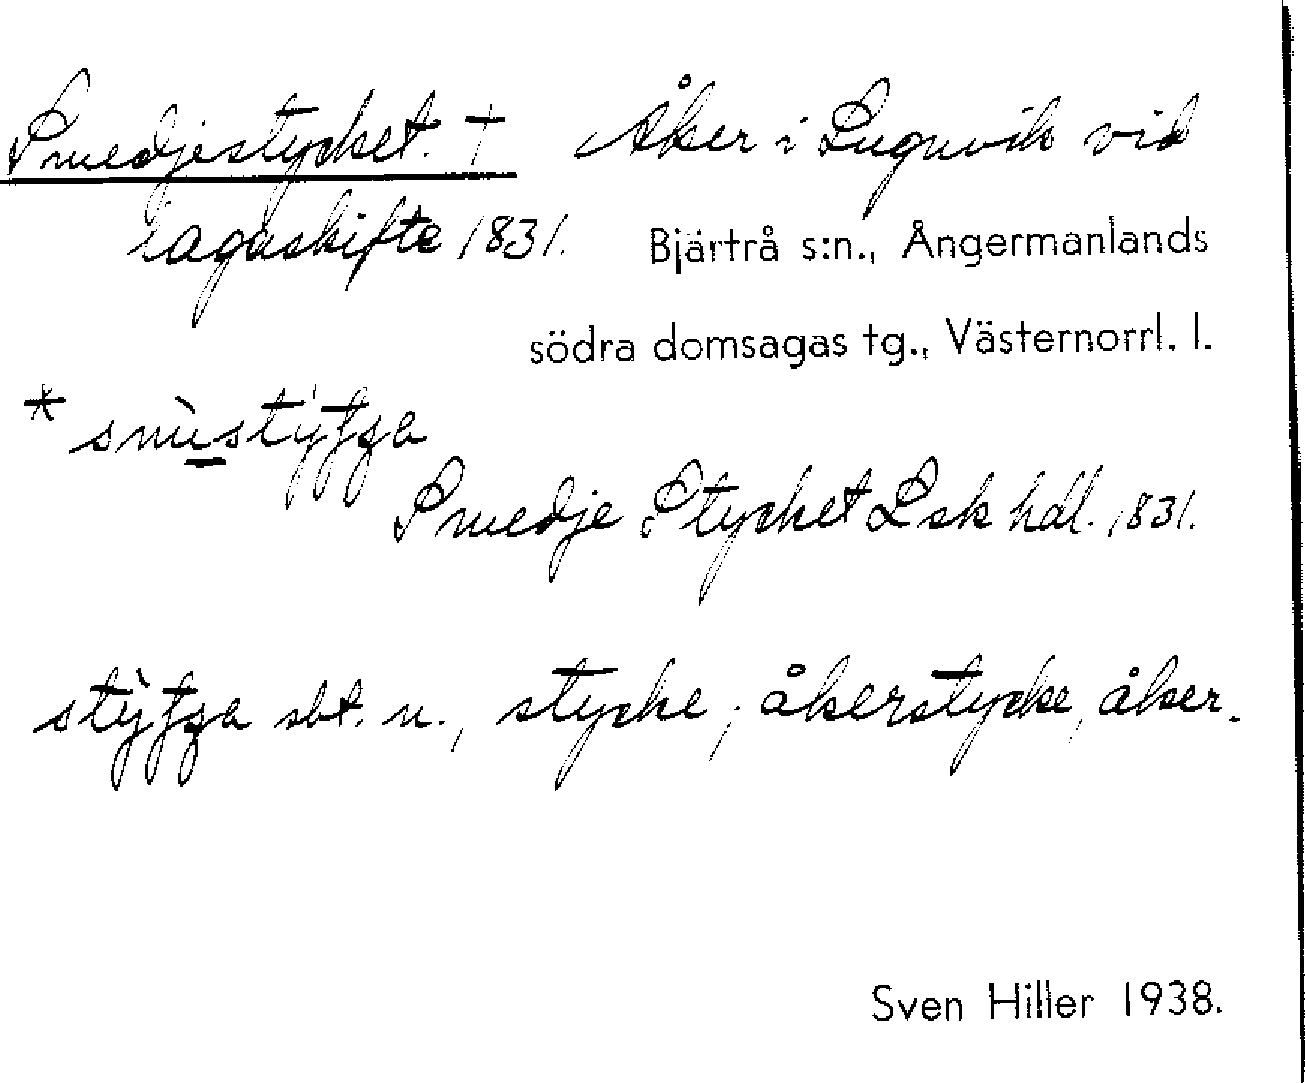 Smedjestycket. † Åker i Lugnvik vid
lagaskifte 1831. Bjärtrå s:n., Ångermanlands
södra domsagas tg., Västernorrl. l.
Smedje Stycket Lsk hdl. 1831.
sbt. n., stycke; åkerstycke, åker.
Sven Hiller 1938.